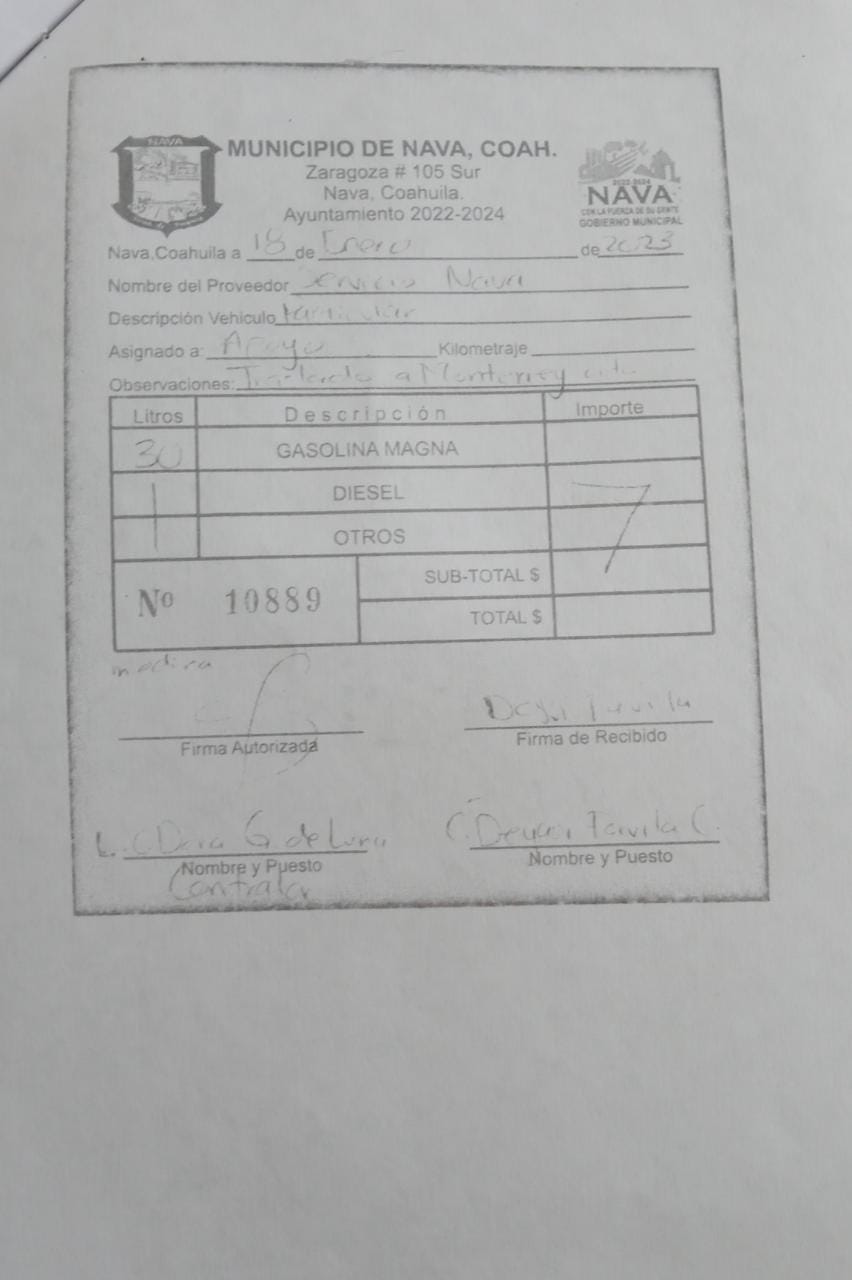 NAVA
MUNICIPIO DE NAVA, COAH.
Zaragoza # 105 Sur
Nava, Coahuila.
Ayuntamiento 2022-2024
2022-2024
NAVA
CON LA FUERZA DE SU GENTE
GOBIERNO MUNICIPAL
Nava,Coahuila a 18 de Enero de 2023
Nombre del Proveedor Servicio Nava
Descripción Vehiculo Particular
Asignado a: Apoyo Kilometraje
Observaciones: Traslado a Monterrey cita
Litros Descripción Importe
30 GASOLINA MAGNA
DIESEL
OTROS
Nº 10889 SUB-TOTAL $
TOTAL $
medica
Firma Autorizada
Firma de Recibido
L.C Dora G. de Luna
Nombre y Puesto
Contralor
C. Tavila C.
Nombre y Puesto